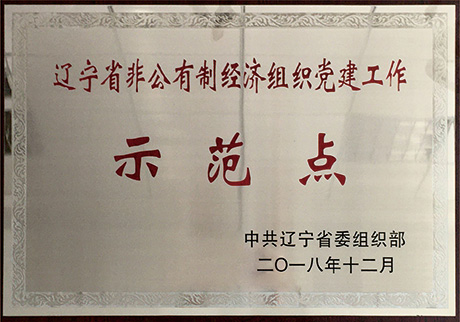 辽宁省非公有制经济组织党建工作
示范点
中共辽宁省委组织部
二〇一八年十二月